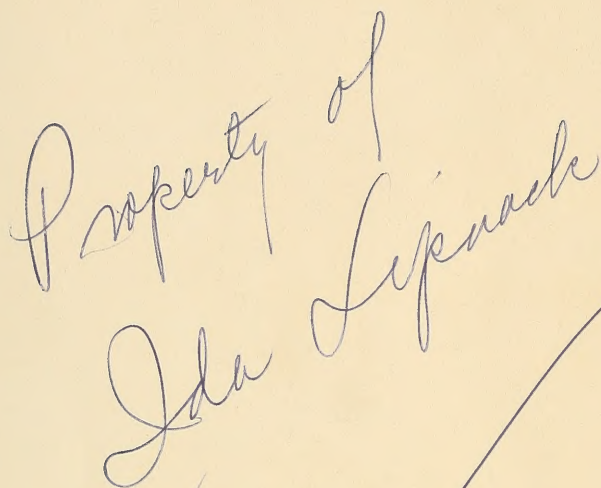 Property of
Ida Lipnack